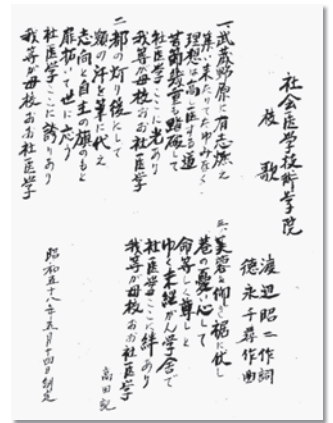 社会医学技術学院
校歌
渡辺昭二作詞
徳永千尋作曲
一、武蔵野原に有志燃え
集い来たりてたゆみなく
理想は高し医する道
苦菊幾重も踏破して
社医学ここに光あり
我等が母校おお社医学
二、都の灯り後にして
額の汗を筆に代え
志向と自主の旗のもと
扉拓いて世に応う
社医学ここに誇りあり
我等が母校おお社医学
三、芙蓉を仰ぎ裾に伏し
巷の憂い心して
命等しく尊しと
ゆく末組がん学舎で
社医学ここに絆あり
我等が母校おお社医学
高田記
昭和五十八年五月十四日制定